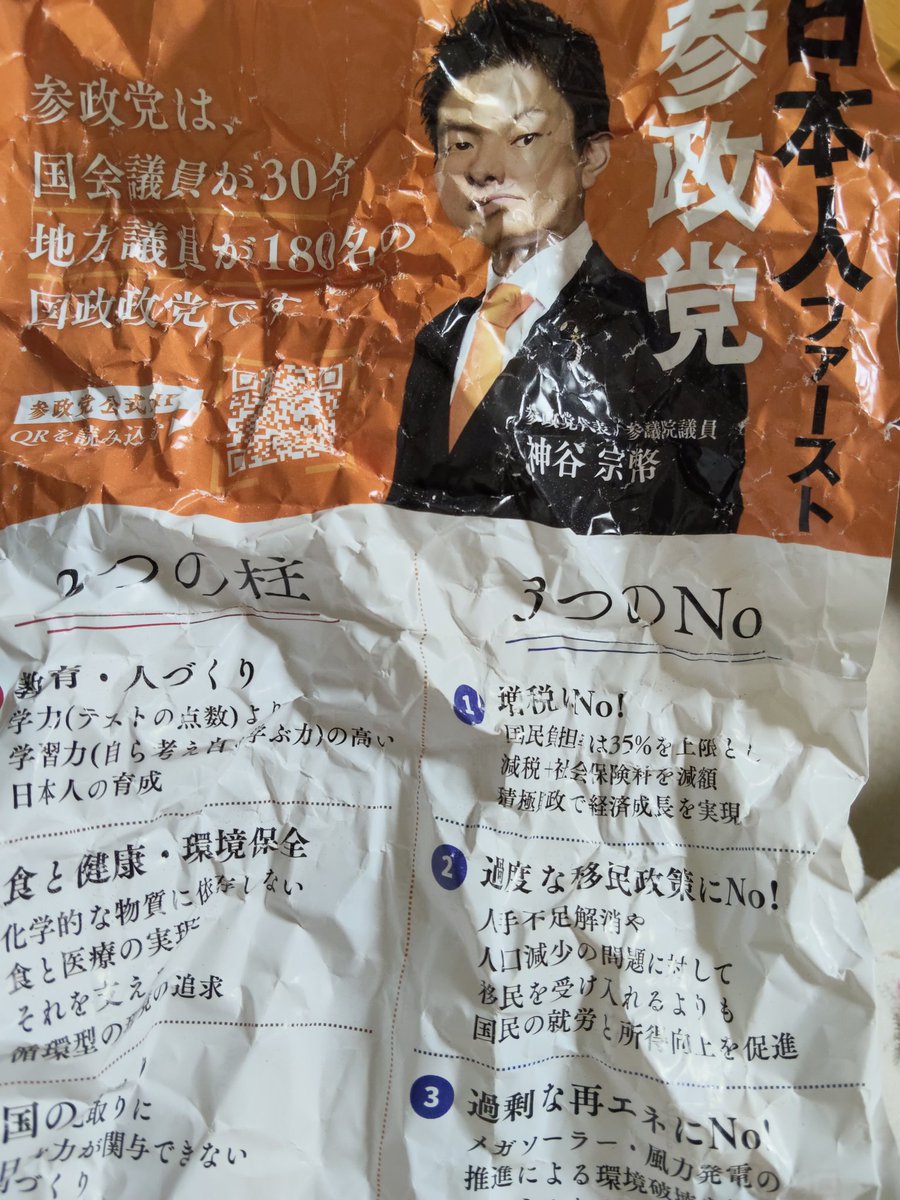 日本人ファースト
参政党
参政党は、
国会議員が30名
地方議員が180名の
国政政党です
参政党公式
QRを読み込む
参政党代表 参議院議員
神谷 宗幣
つの柱
教育・人づくり
学力(テストの点数)より
学習力(自ら考え 学ぶ力)の高い
日本人の育成
食と健康・環境保全
化学的な物質に依存しない
食と医療の実現
それを支え の追求
循環型の
国の 取りに
力が関与できない
づくり
3つのNo
1 増税 No!
国民負担 は35%を上限と
減税 社会保険料を減額
積極 政で経済成長を実現
2 過度な移民政策にNo!
人手不足解消や
人口減少の問題に対して
移民を受け入れるよりも
国民の就労と所得向上を促進
3 過剰な再エネにNo!
メガソーラー・風力発電の
推進による環境破壊